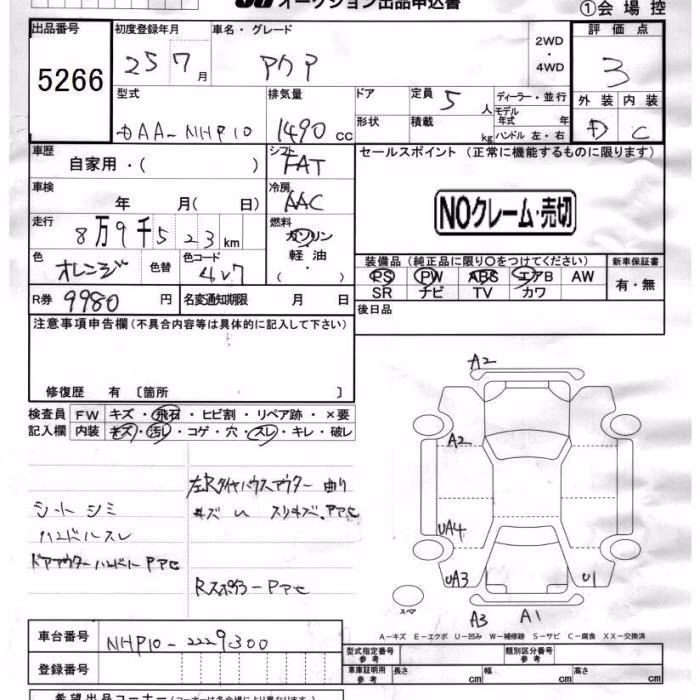 オークション出品申込書
①会場控
出品番号 初度登録年月 車名・グレード 評価点
5266 25 7月 アクア 2WD・4WD 3
型式 排気量 ドア 定員 5人 ディーラー・並行 外装 内装
DAA-NHP10 1490cc 形状 積載 kg モデル年式 年 ハンドル 左・右 D C
車歴 シフト セールスポイント(正常に機能するものに限ります)
自家用・( ) FAT
車検 冷房
年 月( 日) AAC NOクレーム・売切
走行 燃料
8万9千523km ガソリン
軽油・
( )
色 色替 色コード 装備品(純正品に限り○をつけてください) 新車保証書
オレンジ 4V7 PS PW ABS エアB AW 有・無
SR ナビ TV カワ
R券 9980円 名変通知期限 月 日 後日品
注意事項申告欄(不具合内容等は具体的に記入して下さい)
修復歴 有 〔箇所 〕
検査員 FW キズ・飛石・ヒビ割・リペア跡・×要
記入欄 内装 キズ・汚レ・コゲ・穴・スレ・キレ・破レ
左Rタイヤハウスアウター 曲り
シートシミ
ハンドルスレ
ドアアウターハンドル
Rスポイラー
A2
A2
UA4
UA3 U1
スペア
A3 A1
A-キズ E-エクボ U-凹み W-補修跡 S-サビ C-腐食 XX-交換済
車台番号 NHP10-2229300
型式指定番号 参考 類別区分番号 参考
登録番号
車庫証明用 参考 長さ cm 幅 cm 高さ cm
希望出品コーナー(コーナーは各会場により異なります)